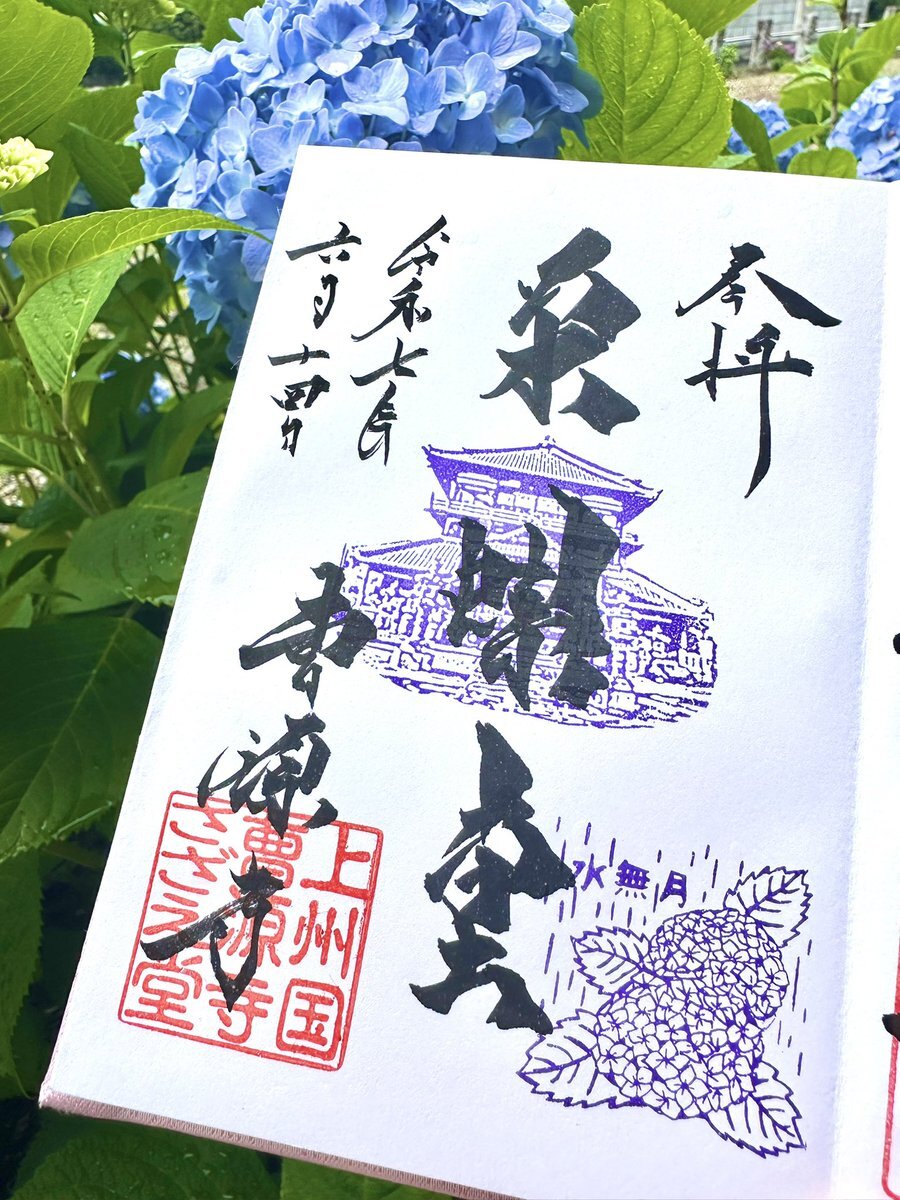 奉拝
栄螺堂
水無月
令和七年
六月十四日
曹源寺
上州国
曹源寺
さざえ堂